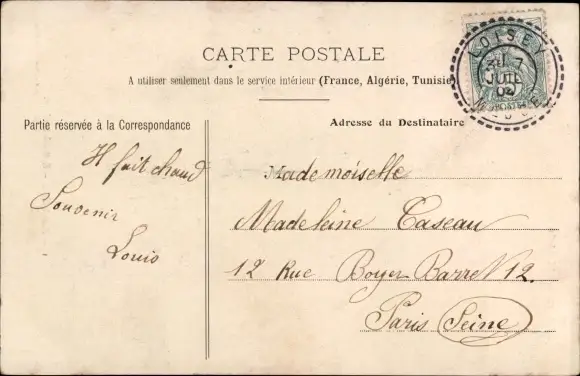 CARTE POSTALE
A utiliser seulement dans le service intérieur (France, Algérie, Tunisie)
Partie réservée à la Correspondance
Adresse du Destinataire
LOISEY
7
JUIL
MEUSE
Il fait chaud
Souvenir
Louis
Mademoiselle
Madeleine Caseau
12 Rue Boyer Barret N 12.
Paris Seine